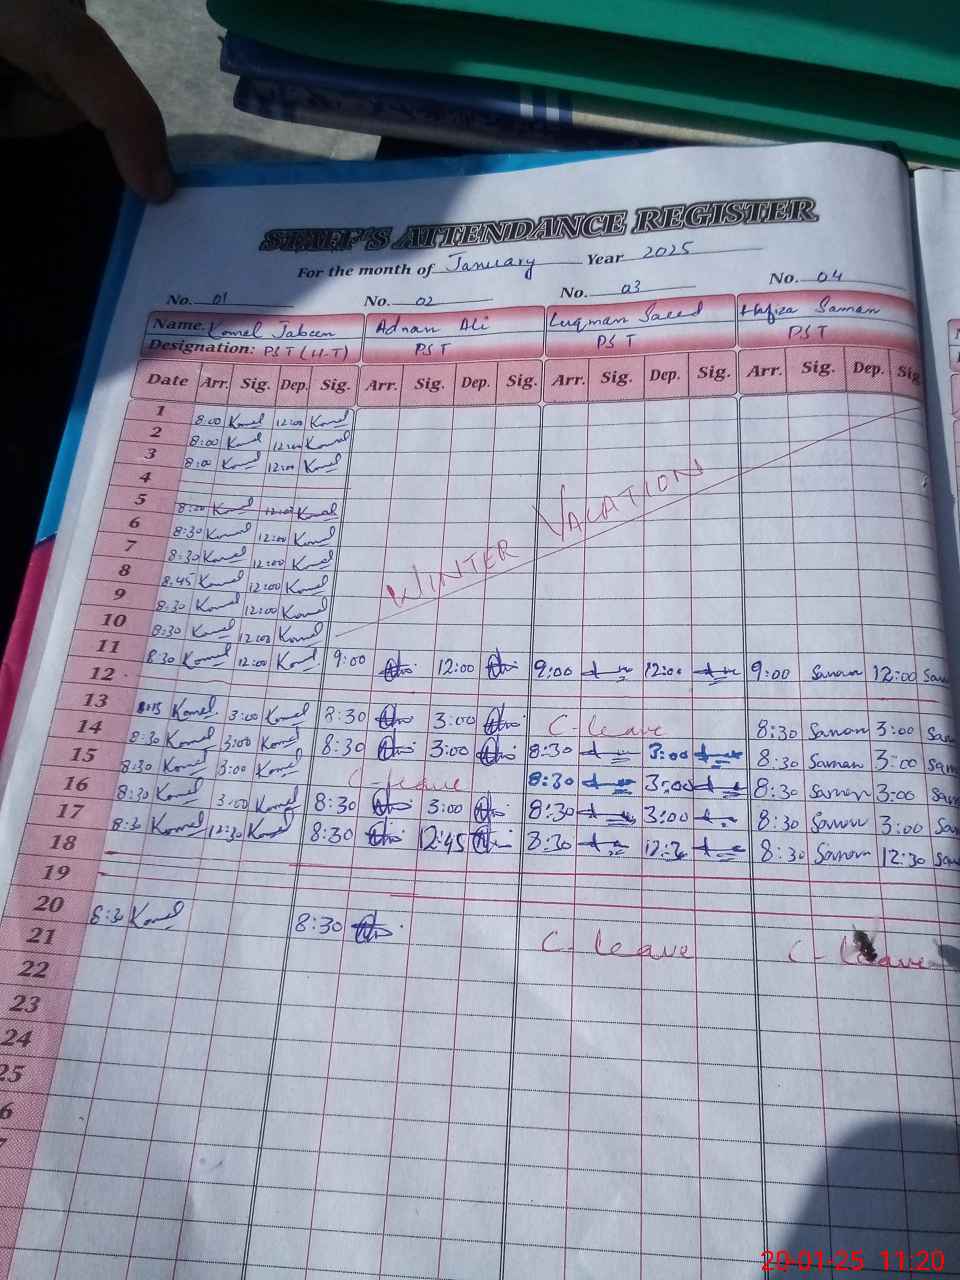 STAFF'S ATTENDANCE REGISTER
For the month of January Year 2025
No. 01 No. 02 No. 03 No. 04
Name. Komel Jabeen Adnan Ali Luqman Saeed Hafiza Saman
Designation: PST (H-T) PST PST PST
Date Arr. Sig. Dep. Sig. Arr. Sig. Dep. Sig. Arr. Sig. Dep. Sig. Arr. Sig. Dep. Sig
1 8:00 Komel 12:00 Komel
2 8:00 Komel 12:00 Komel
3 8:00 Komel 12:00 Komel
4
5 Komel Komel
6 8:30 Komel 12:00 Komel
7 8:30 Komel 12:00 Komel
8 8:45 Komel 12:00 Komel
9 8:30 Komel 12:00 Komel
10 8:30 Komel 12:00 Komel
WINTER VACATION
11 8:30 Komel 12:00 Komel 9:00 12:00 9:00 12:00 9:00 Saman 12:00 Sam
12
13 Komel 3:00 Komel 8:30 3:00 C-leave 8:30 Saman 3:00 Sam
14 8:30 Komel 3:00 Komel 8:30 3:00 8:30 3:00 8:30 Saman 3:00 Sam
15 8:30 Komel 3:00 Komel C-leave 8:30 3:00 8:30 Saman 3:00 Sam
16 8:30 Komel 3:00 Komel 8:30 3:00 8:30 3:00 8:30 Saman 3:00 Sam
17 8:30 Komel 12:30 Komel 8:30 12:45 8:30 8:30 Saman 12:30 Sam
18
19
20 8:30 Komel 8:30 C-leave C-leave
21
22
23
24
25
6
7
20-01-25 11:20